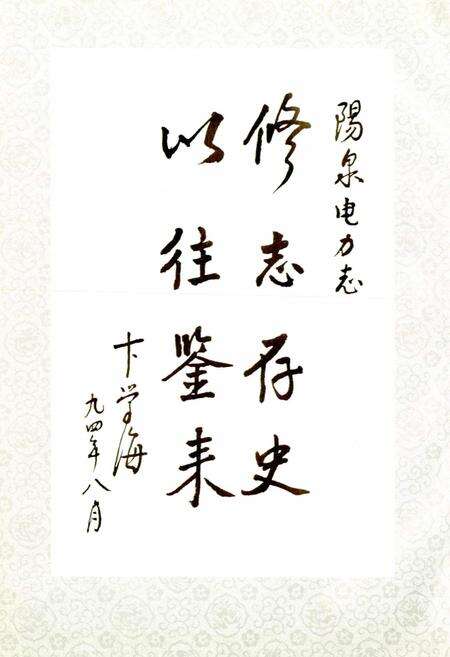 陽泉电力志
修志存史
以往鉴来
卞学海
九四年八月